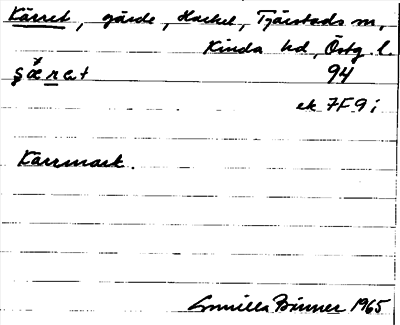 Kärret, gärde, Hackel, Tjärstads sn,
Kinda hd, Östg. l.
94
ek 7F9i
Kärrmark.
Gunilla Binner 1965